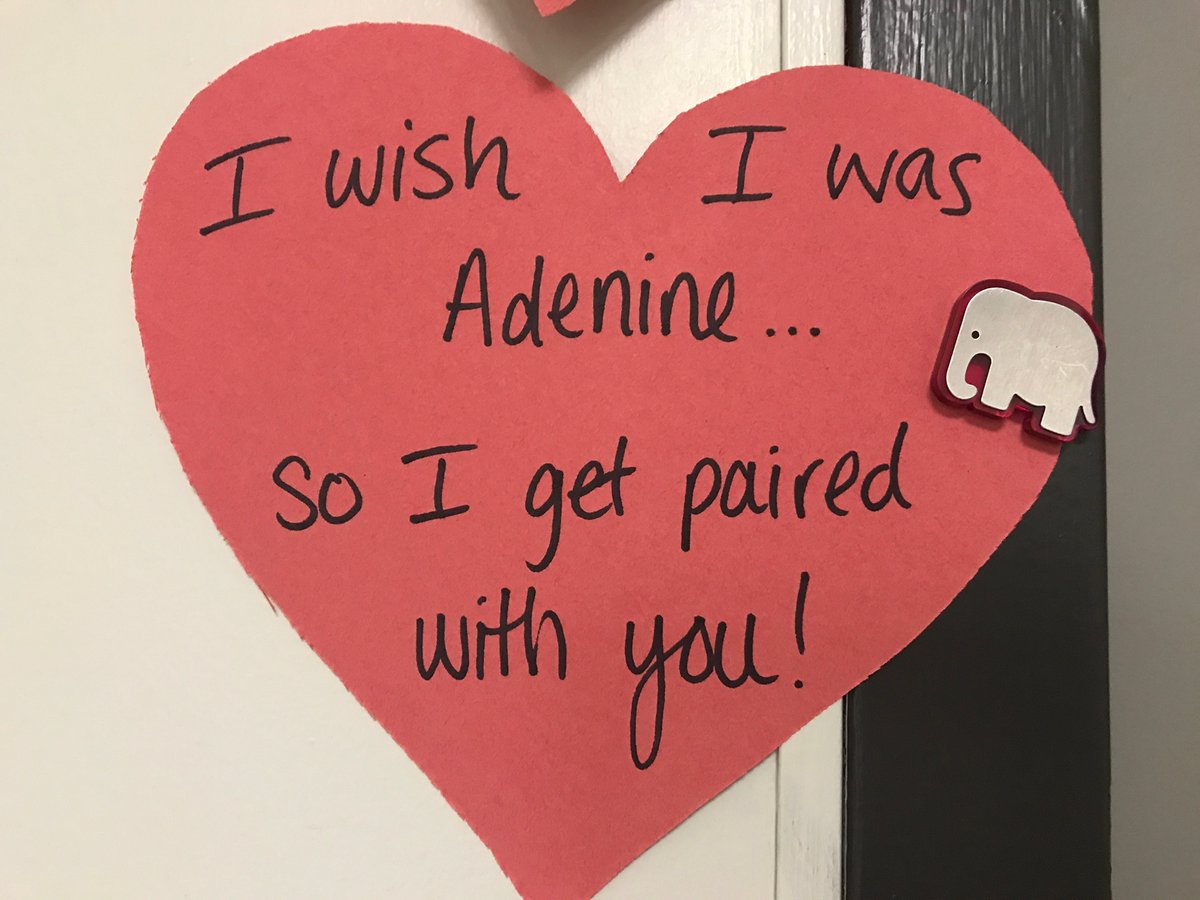 I wish I was
Adenine...
so I get paired
with you!